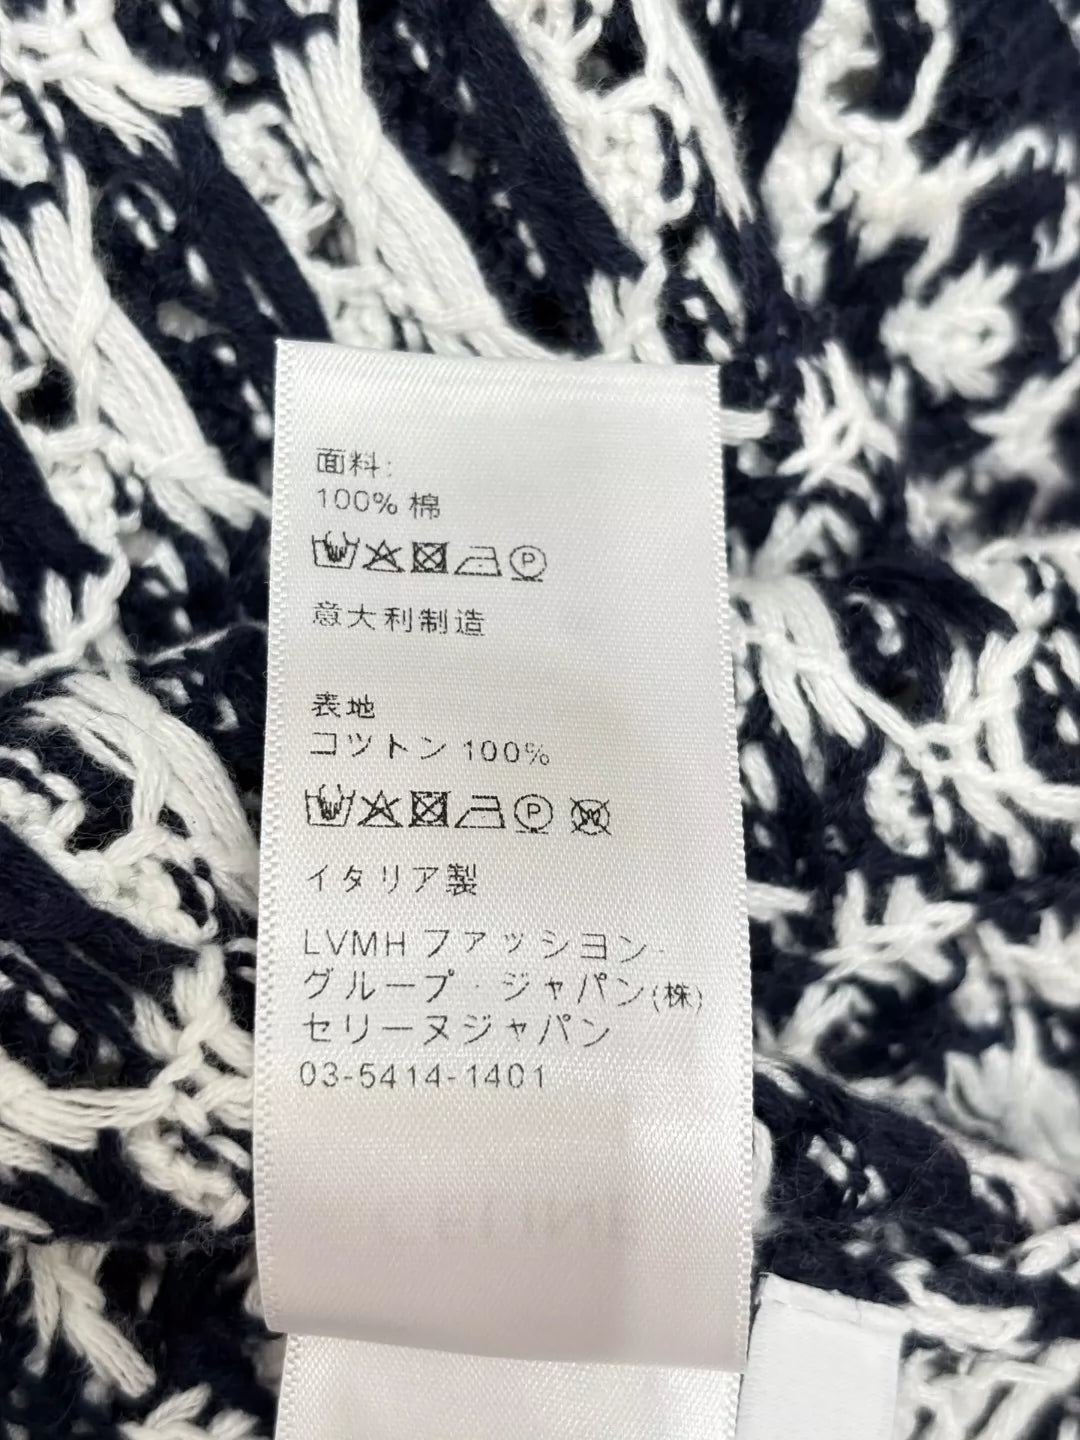 面料:
100% 棉
P
意大利制造
表地
コットン 100%
P W
イタリア製
LVMH ファッション・
グループ・ジャパン(株)
セリーヌジャパン
03-5414-1401